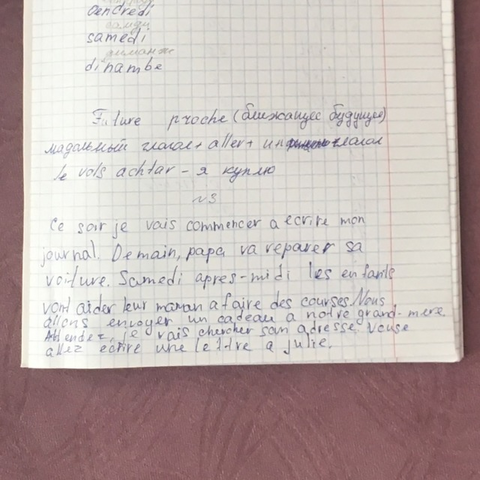 vendredi
samedi
диманж
dimambe
Future proche (ближайщее будущее)
модольный глагол + aller + ин глагол
le vols achtar - я куплю
N3
Ce soir je vais commencer a ecrire mon
journal. Demain, papa va reparer sa
voiture. Samedi apres-midi les enfants
vont aider leur maman a faire des courses. Nous
allons envoyer un cadeau a notre grand-mere
Attendez, je vais chercher son adresse vouse
allez ecrire une lettre a julie.